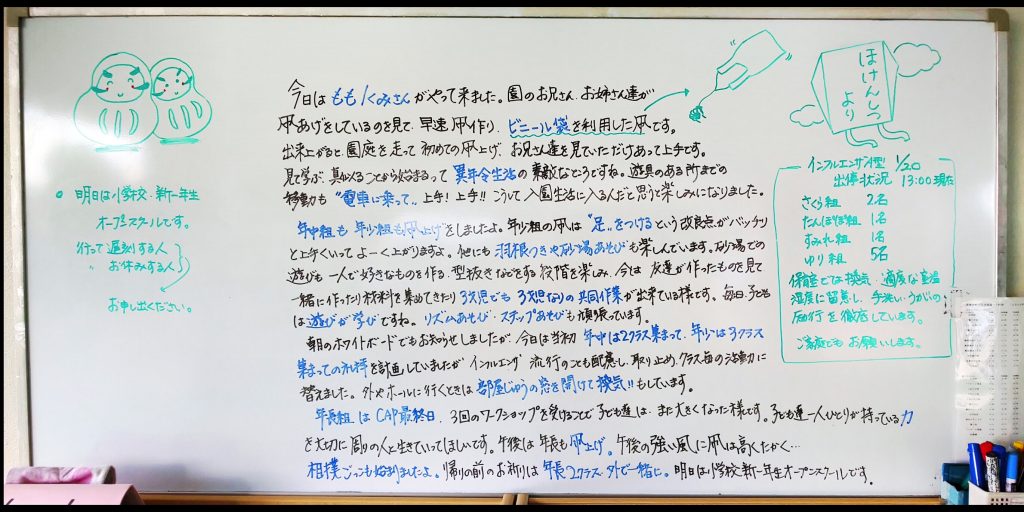 明日は小学校・新一年生
オープンスクールです。
行って遅刻する人
お休みする人
お申し出ください。
今日は もも1くみさん がやって来ました。園のお兄さん、お姉さん達が
凧あげをしているのを見て、早速 凧作り、ビニール袋を利用した凧です。
出来上がると、園庭を走って 初めての凧上げ、お兄さん達を見ていただけあって上手です。
見て学ぶ、真似ることから始まるって 異年令生活の素敵なところですね。遊具のある所までの
移動も "電車に乗って"、上手！上手!! こうして入園生活に入るんだと思うと楽しみになりました。
年中組も 年少組も凧上げをしましたよ。年少組の凧は "足"をつけるという改良点がバッチリ
と上手くいって よーく上がりますよ。他にも 羽根つきや砂場あそびも楽しんでいます。砂場での
遊びも 一人で好きなものを作る、型抜きなどをする段階を楽しみ、今は 友達が作ったものを見て
一緒に作ったり 材料を集めてきたり 3才児でも 3才児なりの共同作業が出来ている様です。毎日、子ども
は 遊びが学びですね。リズムあそび・ステップあそびも頑張っています。
朝のホワイトボードでもお知らせしましたが、今日は当初 年中は2クラス集まって、年少は3クラス
集まっての礼拝を計画していましたが インフルエンザ 流行のことも配慮し、取り止め、クラス毎の活動に
替えました。外やホールに行くときは 部屋じゅうの窓を開けて換気!!もしています。
年長組は CAP最終日。3回のワークショップを受けることで子ども達は、また大きくなった様です。子ども達一人ひとりが持っている力
を大切に 周りの人と生きていってほしいです。午後は 年長も凧上げ。午後の強い風に 凧は高くたかく…
相撲ごっこも始まりましたよ。帰りの前のお祈りは 年長2クラス 外で一緒に。明日は小学校新一年生オープンスクールです。
ほけんしつ
より
インフルエンザ 1/20
出停状況 13:00現在
さくら組 2名
たんぽぽ組 1名
すみれ組 1名
ゆり組 5名
保育室では換気・適度な室温
湿度に留意し、手洗い・うがいの
励行を徹底しています。
ご家庭でも お願いします。